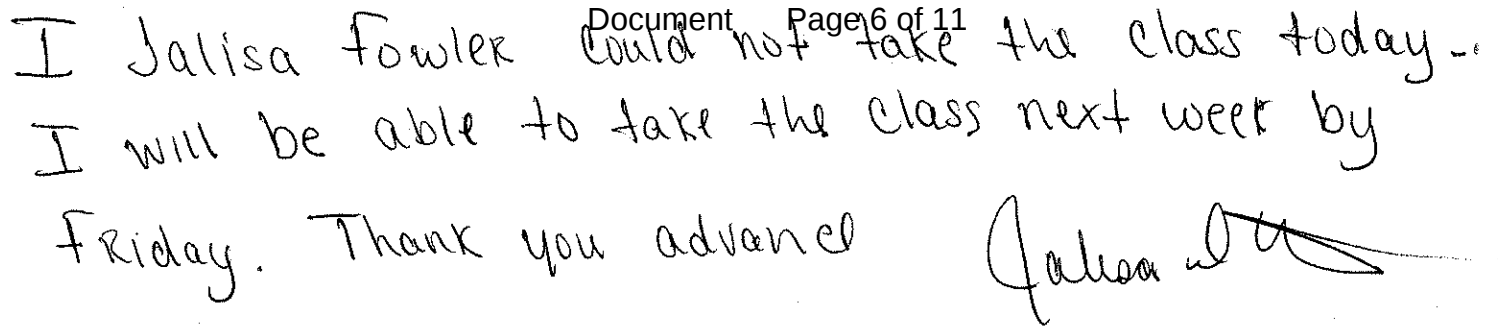 Document Page 6 of 11
I Jalisa Fowler could not take the class today..
I will be able to take the class next week by
Friday. Thank you advance Jalisa